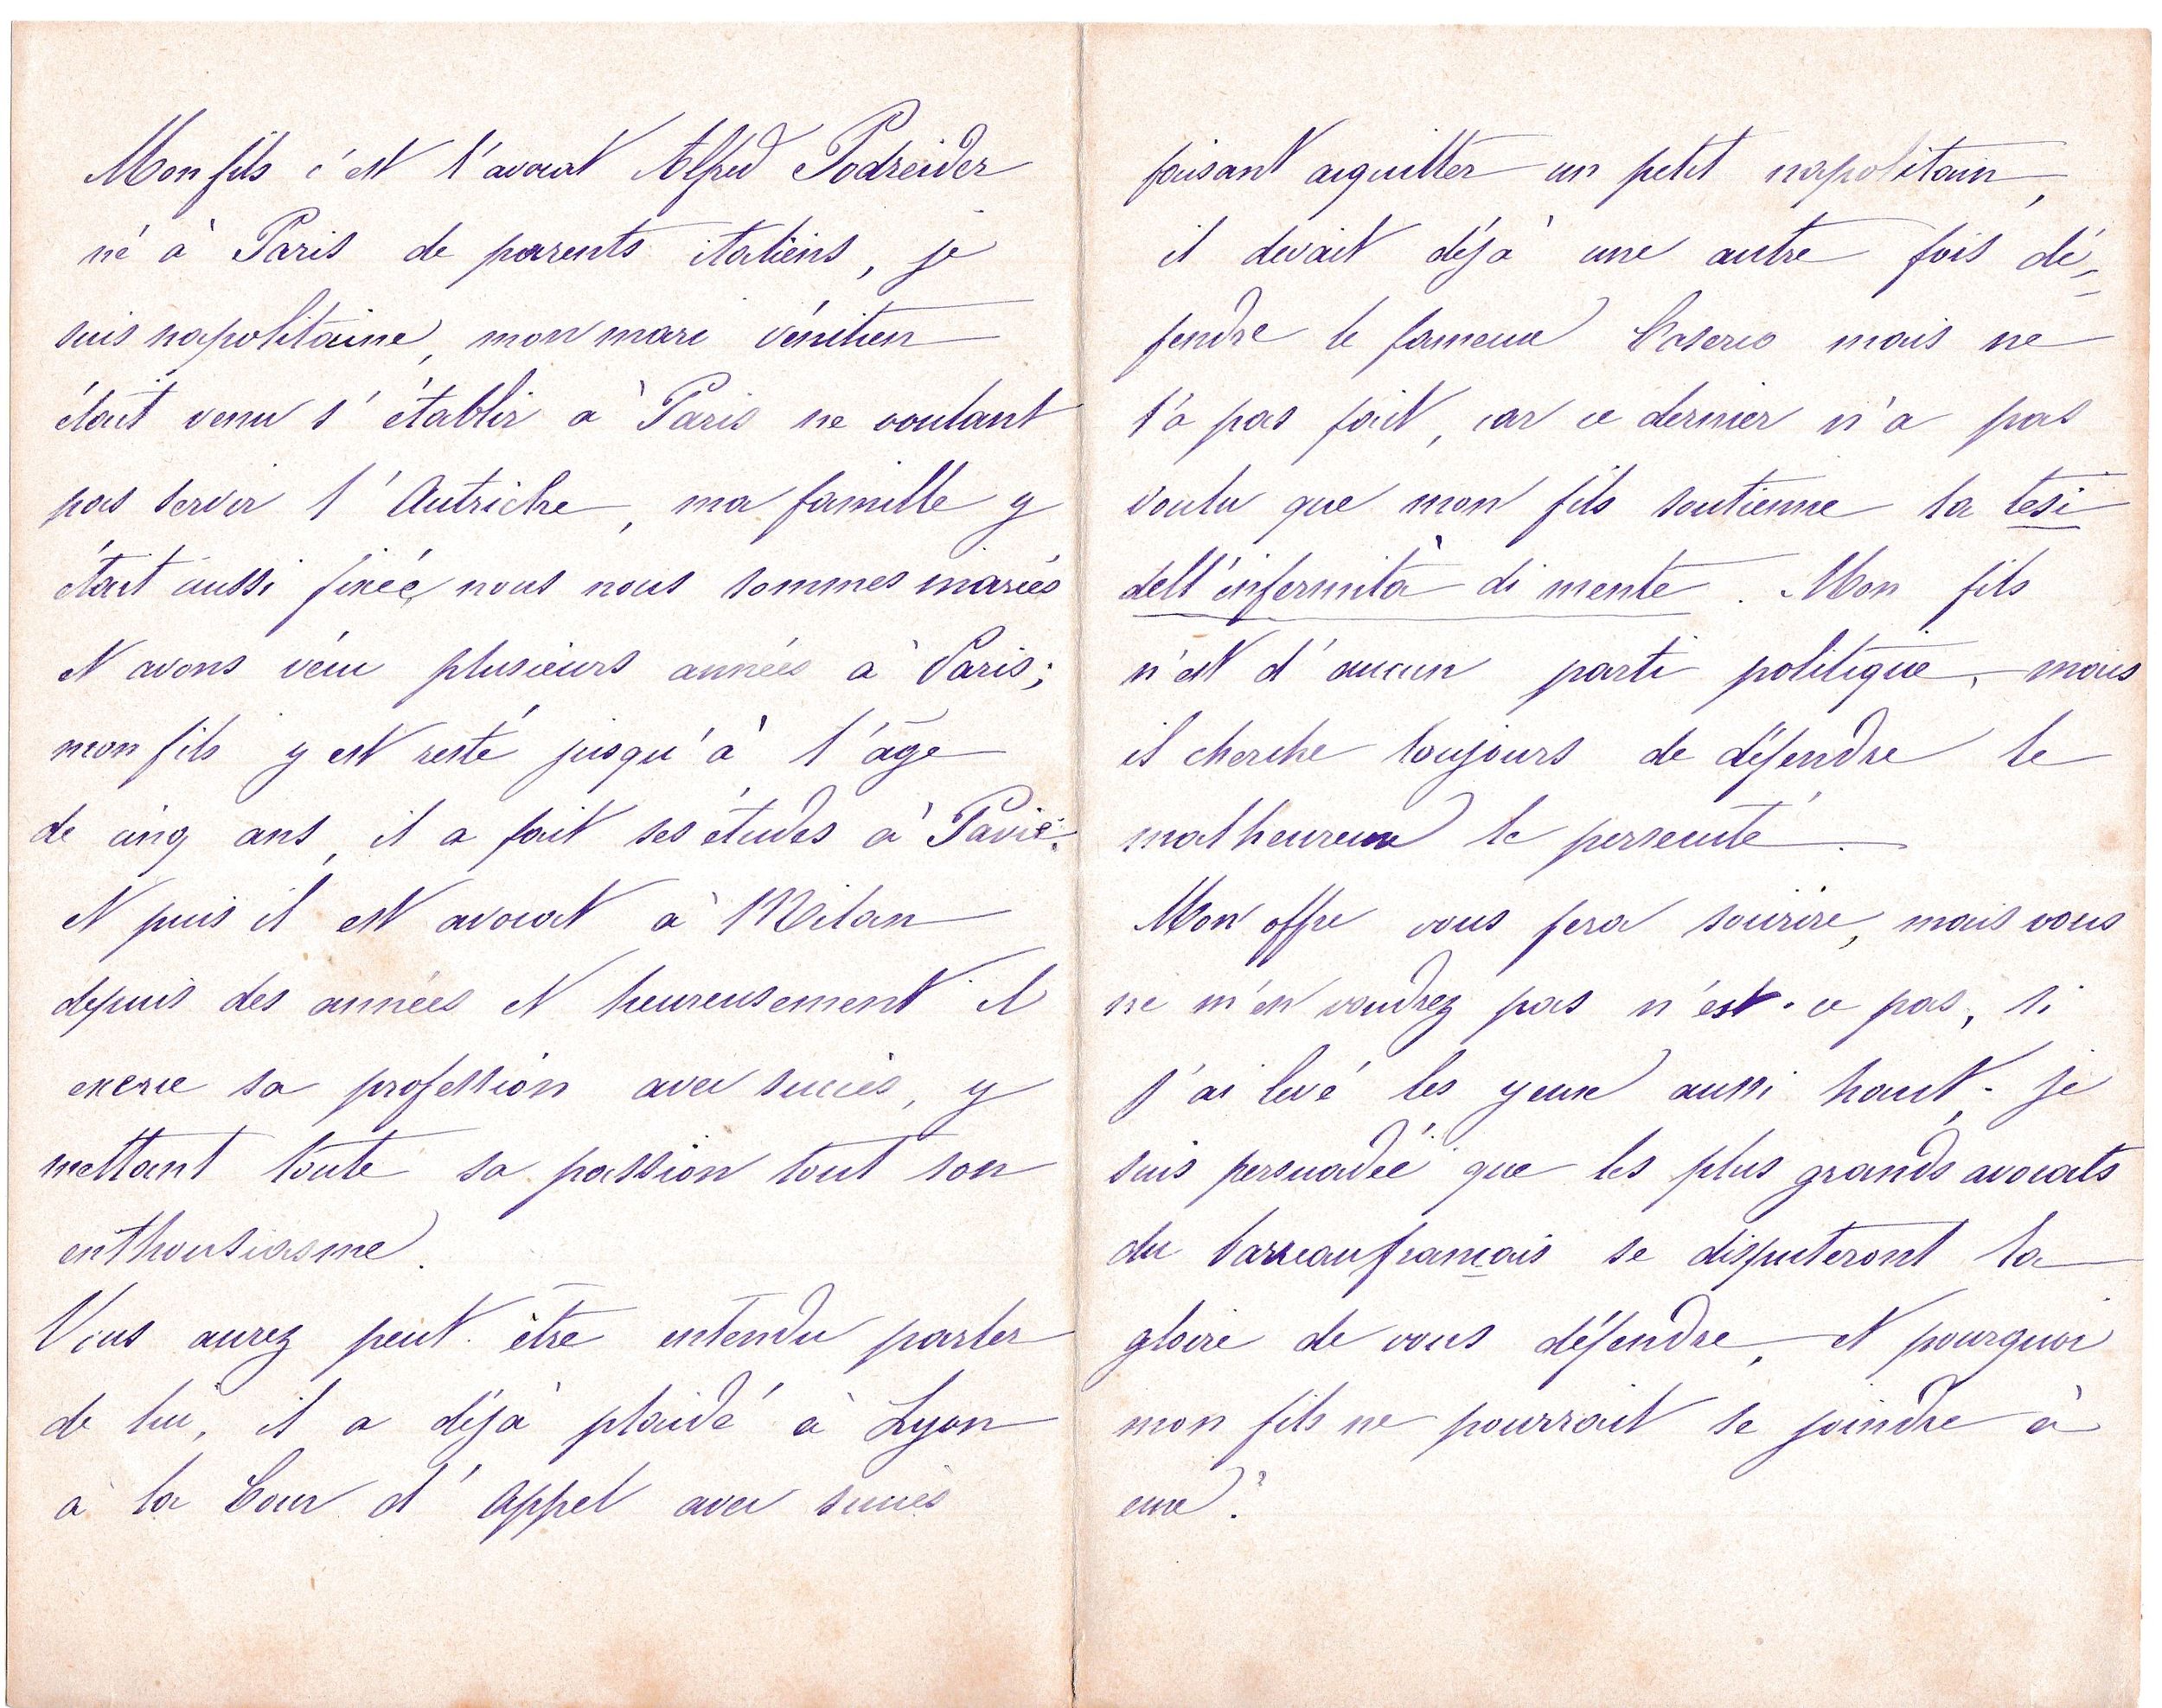 Mon fils c'est l'avocat Alfred Podreider
né à Paris de parents italiens, je
suis napolitaine, mon mari vénitien
était venu s'établir à Paris ne voulant
pas servir l'Autriche, ma famille y
était aussi fixée, nous nous sommes mariés
et avons vécu plusieurs années à Paris;
mon fils y est resté jusqu'à l'âge
de cinq ans, il a fait ses études à Pavie.
et puis il est avocat à Milan
depuis des années et heureusement il
exerce sa profession avec succès, y
mettant toute sa passion tout son
enthousiasme.
Vous aurez peut-être entendu parler
de lui, il a déjà plaidé à Lyon
à la Cour d'Appel avec succès
faisant acquitter un petit napolitain,
il devait déjà une autre fois dé-
fendre le fameux Caserio mais ne
l'a pas fait, car ce dernier n'a pas
voulu que mon fils soutienne la tesi
dell'infermità di mente. Mon fils
n'est d'aucun parti politique, mais
il cherche toujours de défendre le
malheureux le persecuté.
Mon offre vous fera sourire, mais vous
ne m'en voudrez pas n'est-ce pas, si
j'ai levé les yeux aussi haut, - je
suis persuadée que les plus grands avocats
du barreau français se disputeront la
gloire de vous défendre, et pourquoi
mon fils ne pourrait se joindre à
eux?